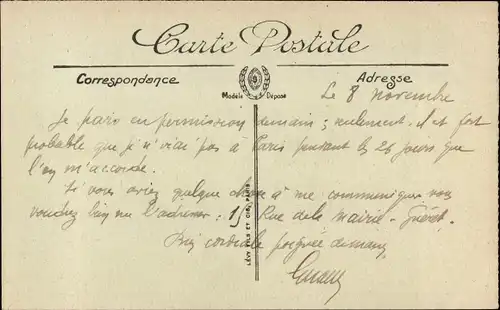 Carte Postale
Correspondance
Adresse
Modèle Déposé
Le 8 novembre
Je pars en permission demain ; seulement il est fort
probable que je n'irai pas à Paris pendant les 20 jours que
l'on m'accorde.
Si vous aviez quelque chose à me communiquer vous
voudrez bien me l'adresser : 1, Rue de la Mairie - Guéret.
Bien cordiale poignée de main
LÉVY FILS ET CIE, PARIS